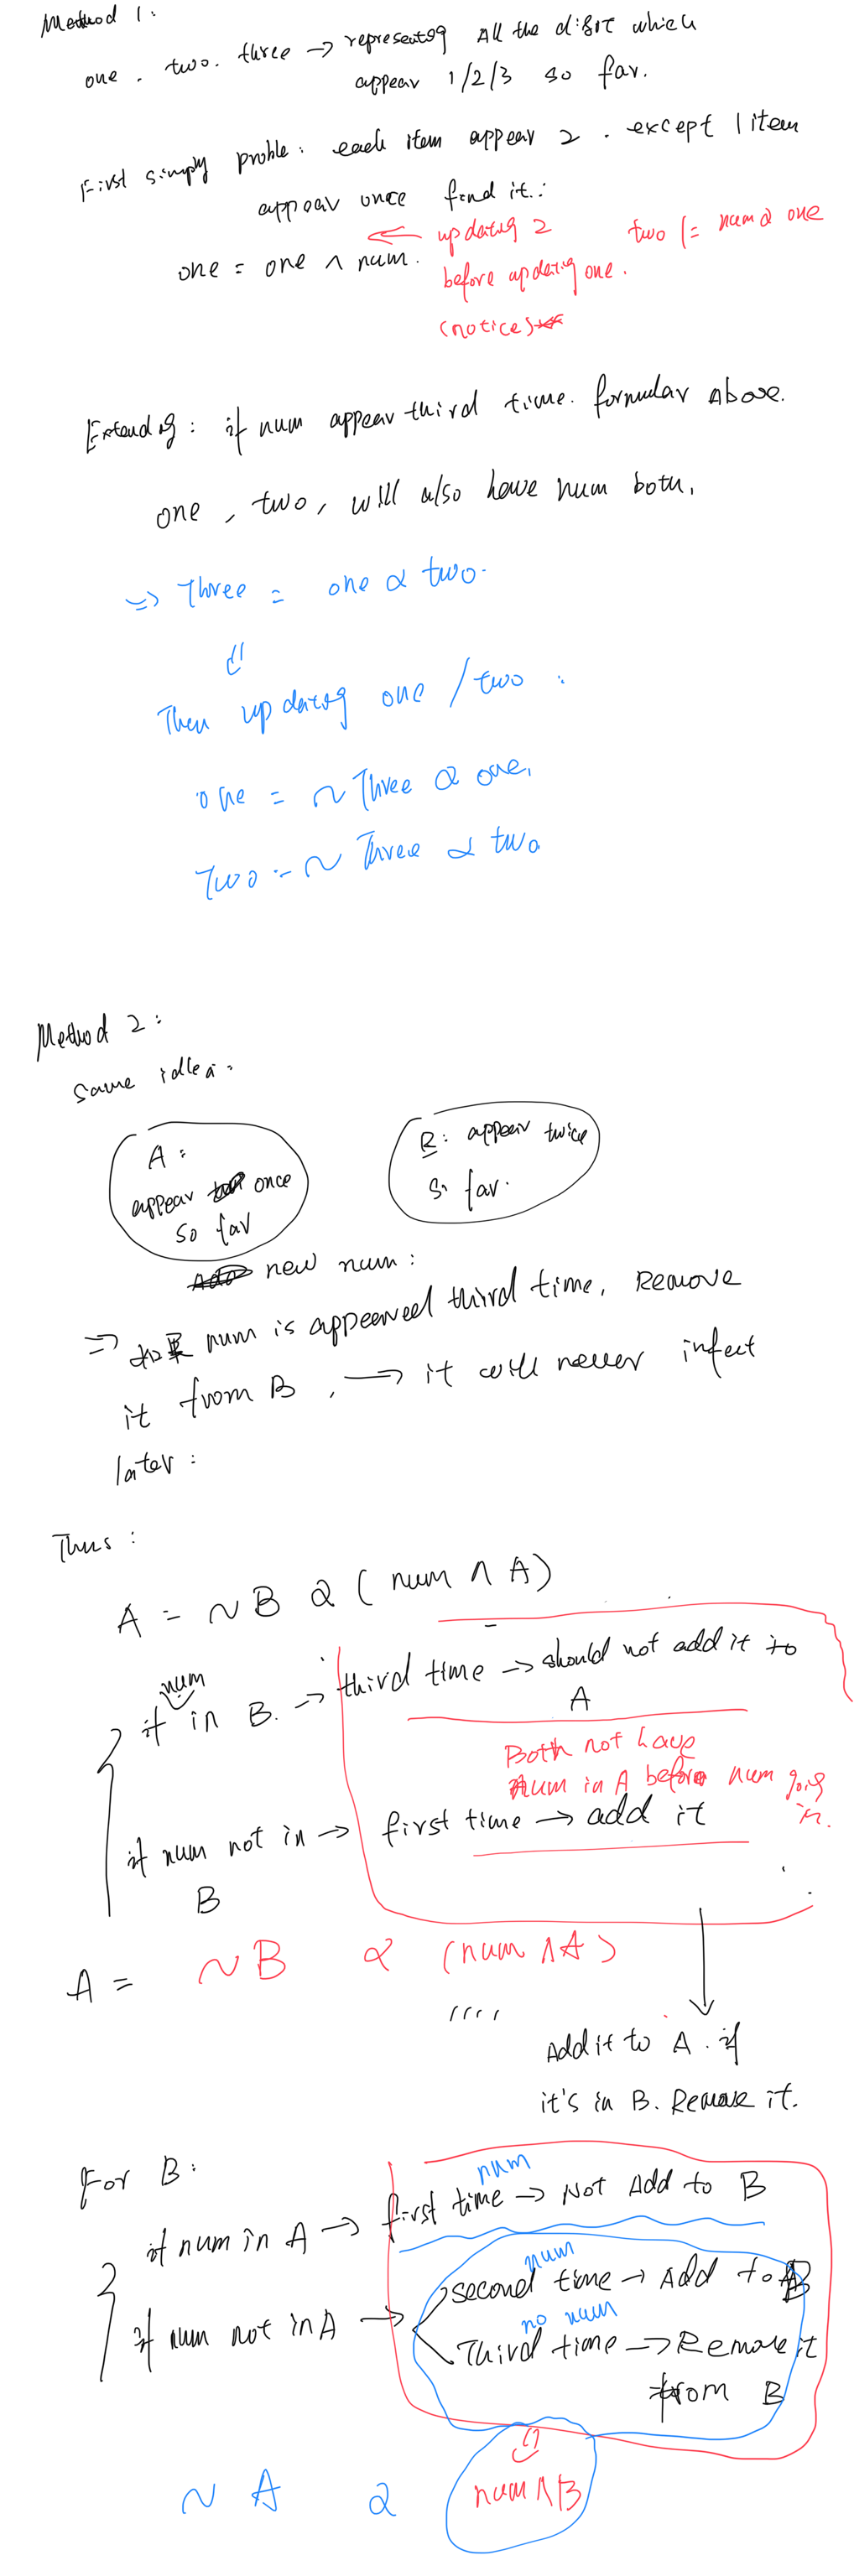 Method 1:
one. two. three → representeg All the digit which
appear 1/2/3 so far.
First simply proble: each item appear 2. except 1 item
appear once find it.:
one = one ∧ num. ← updateg 2 two |= num & one
before updateg one.
(notice)
Extendeg: if num appear third time. formular Above.
one, two, will also have num both.
=> Three = one & two.
⇓
Then updateg one / two:
one = ~Three & one.
Two = ~Three & two
Method 2:
Same idea:
A:
appear once
so far
B: appear twice
so far.
new num:
=> 如果 num is appeered third time. Remove
it from B. → it will never infect
later:
Thus:
A = ~B & (num ∧ A)
if num in B. → third time → should not add it to
A
Both not have
num in A before num going
in.
if num not in → first time → add it
B
A = ~B & (num ∧ A)
,,,,
Add it to A. if
it's in B. Remove it.
For B:
if num in A → first time → Not Add to B
num
if num not in A → second time → Add to B
num
Third time → Remove it
no num
from B
~A & num ∧ B